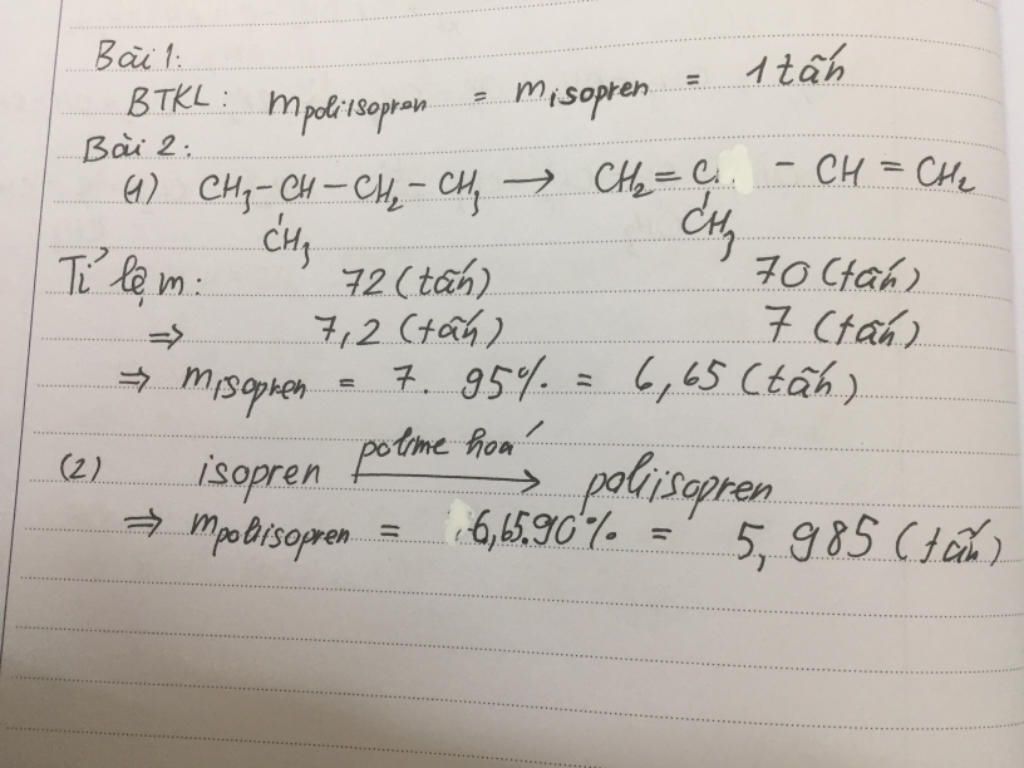 Bài 1:
BTKL: m poliisopren = m isopren = 1 tấn
Bài 2:
(1) CH3-CH-CH2-CH3 → CH2=C - CH = CH2
CH3 CH3
Tỉ lệ m: 72 (tấn) 70 (tấn)
⇒ 7,2 (tấn) 7 (tấn)
⇒ m isopren = 7. 95% = 6,65 (tấn)
(2) isopren polime hoá → poliisopren
⇒ m poliisopren = 6,65.90% = 5,985 (tấn)